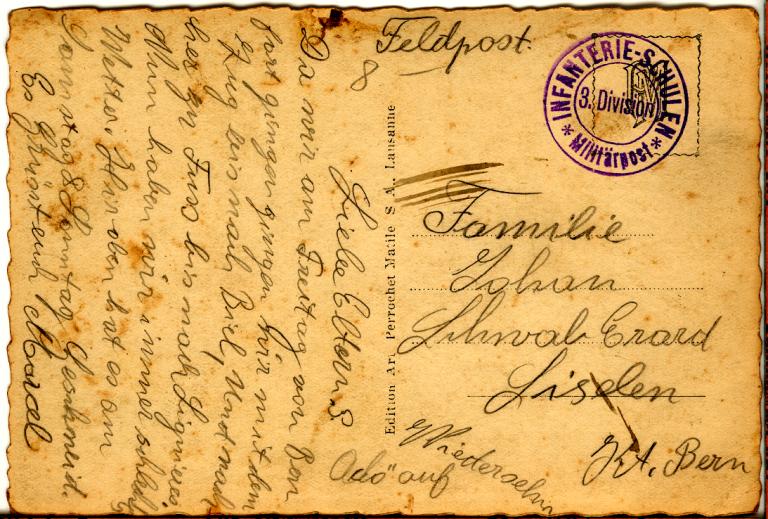 Feldpost.
8
INFANTERIE-SCHULEN
3. Division
* Militärpost *
Liebe Eltern &
Da wir am Freitag von Bern
fort gingen gingen wir mit dem
Zug bis nach Biel, Und nach
her zu Fuss bis nach Lignieres.
Nun haben wir immer schlech
Wetter. Hier oben hat es am
Samstag & Sonntag Geschneit.
Es Grüsst euch Marcel
Adö" auf
Wiedersehn
Edition Ar. Perrochet Matile S A. Lausanne
Familie
Johan
Schwab-Erard
Siselen
Kt. Bern